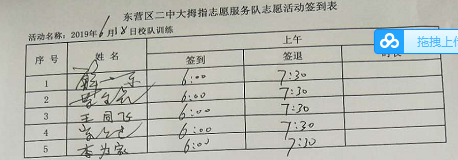 东营区二中大拇指志愿服务队志愿活动签到表
活动名称：2019年6月18日校队训练
序号 姓名 上午
签到 签退
拖拽上传
1 6:00 7:30
2 6:00 7:30
3 王同飞 6:00 7:30
4 6:00 7:30
5 李为家 6:00 7:30